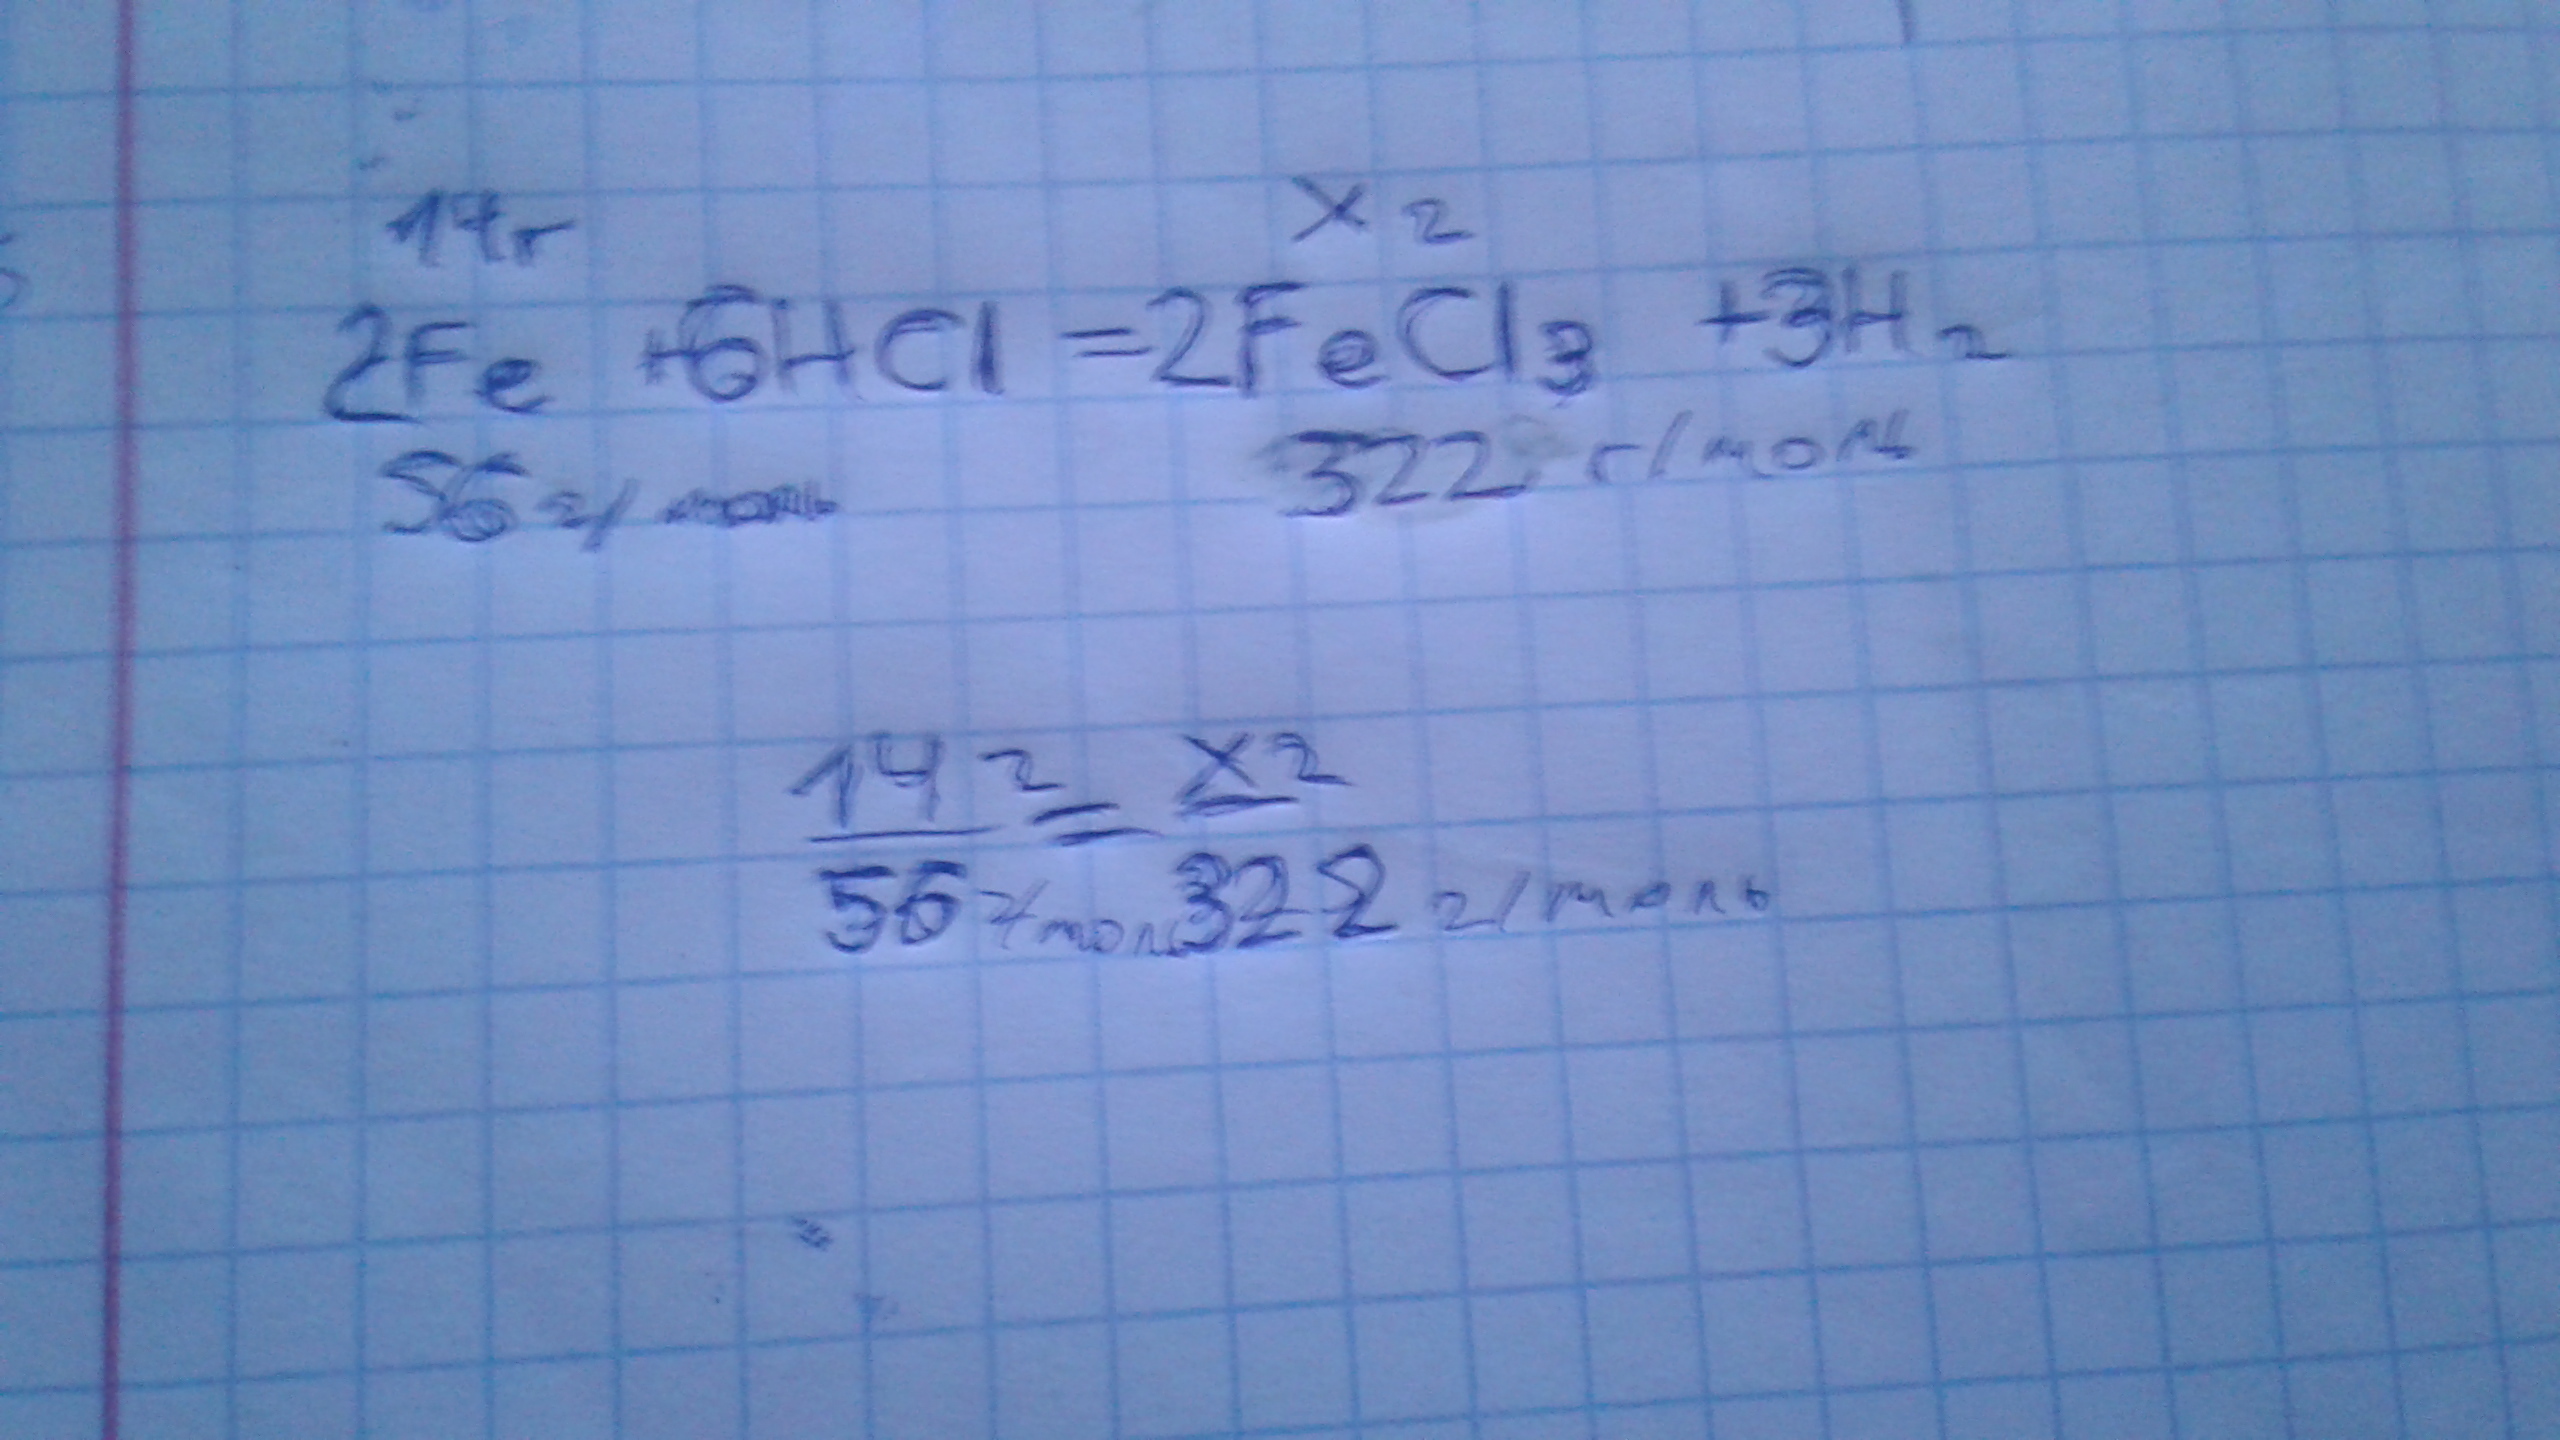 14г х г
2Fe +6HCl =2FeCl3 +3H2
56 г/моль 322 г/моль
14 г = х г
56 г/мол 322 г/моль